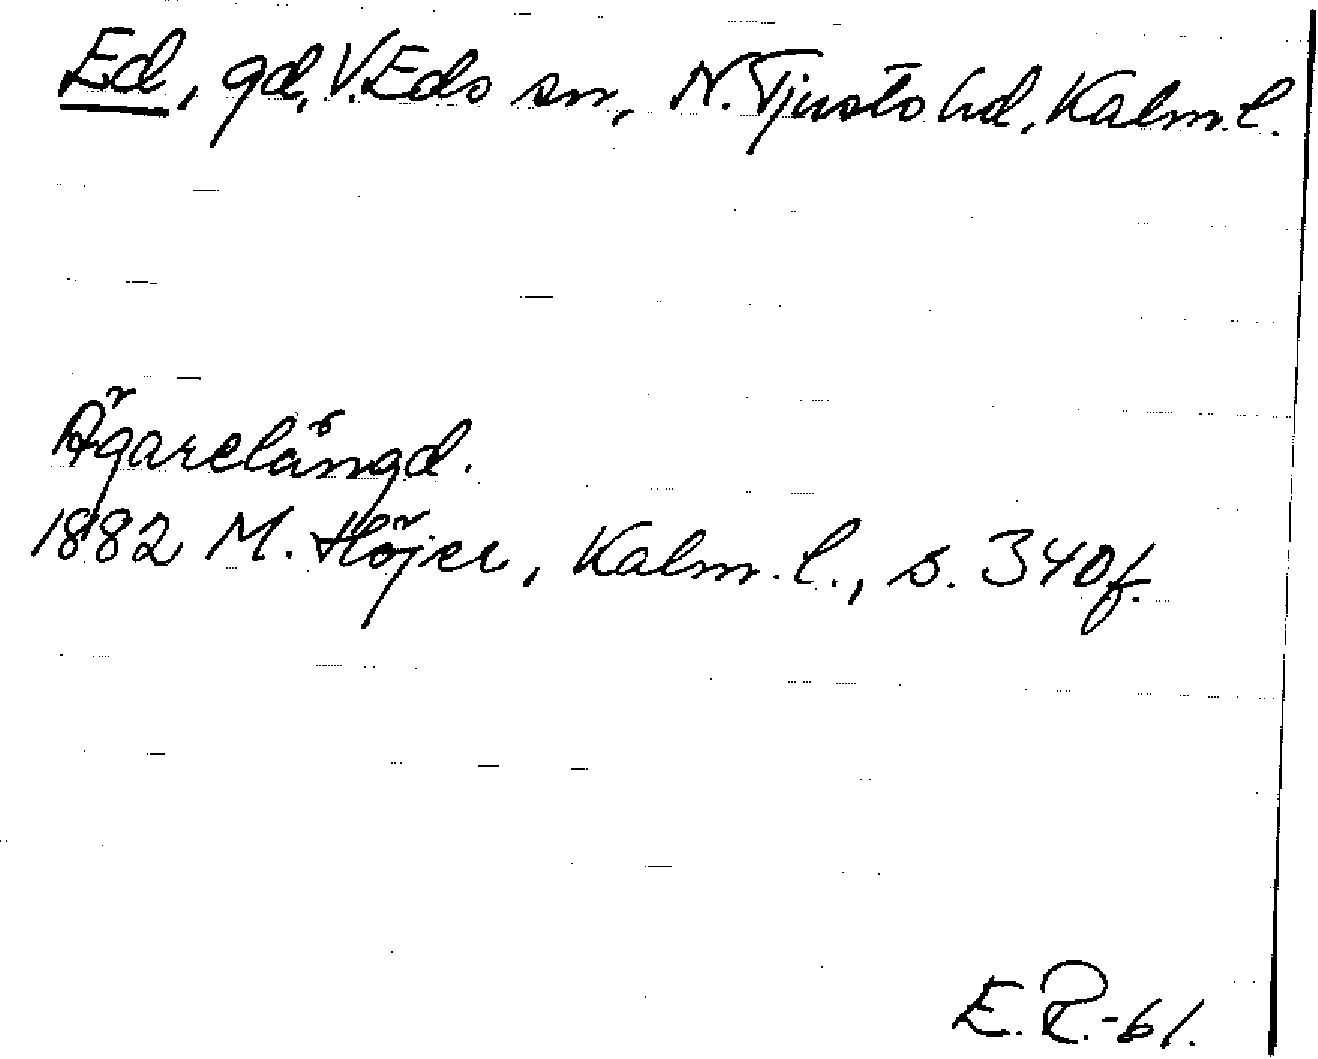 Ed, gd, V. Eds sn, N. Tjusts hd, Kalm. l.
Ägarelängd.
1882 M. Höjer, Kalm. l., s. 340f.
E.R.-61.